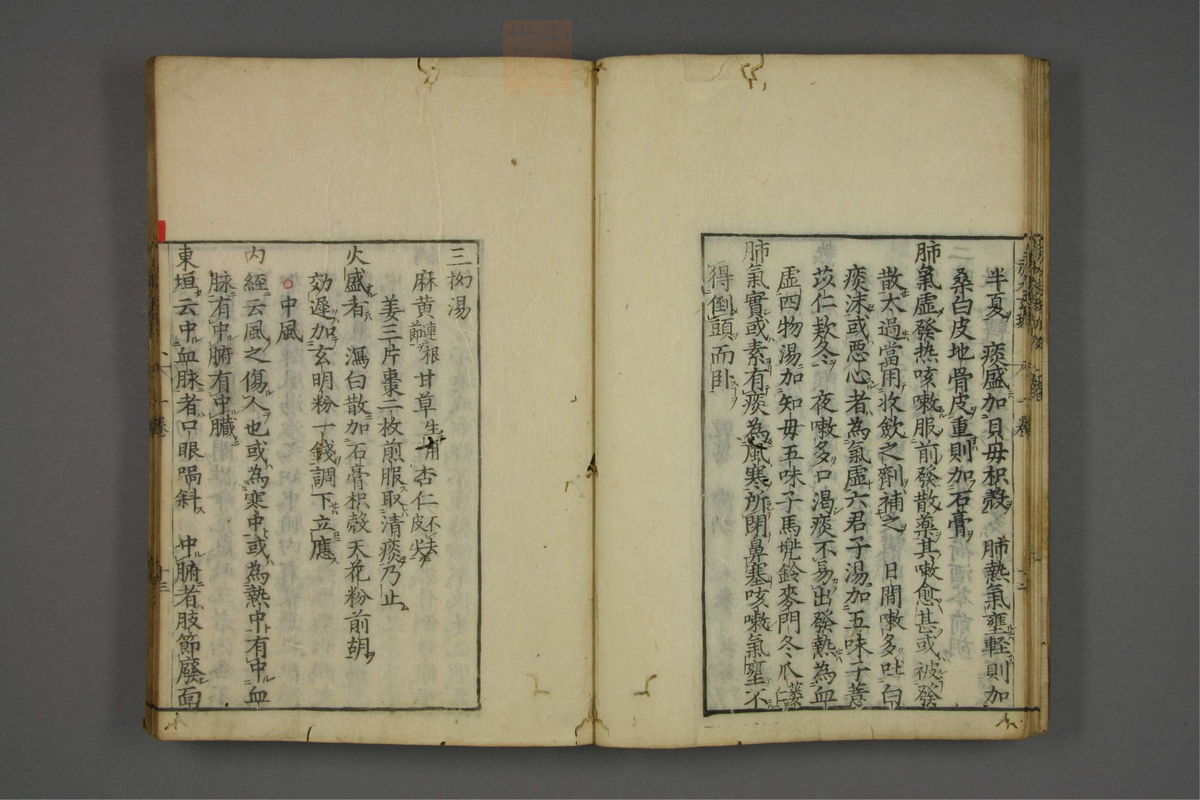 半夏　痰盛加貝母枳殻　肺熱氣壅軽則加
桑白皮地骨皮重則加石膏
肺氣虛發热咳嗽服前發散藥其嗽愈甚或被發
散太過當用收歛之劑補之　日間嗽多吐白
痰沫或惡心者為氣虛六君子湯加五味子薏
苡仁欵冬　夜嗽多口渴痰不易出發熱為血
虛四物湯加知母五味子馬兠鈴麥門冬爪蔞仁
肺氣實或素有痰為風寒所閉鼻塞咳嗽氣壅不
得倒頭而卧
三拗湯
麻黄連根節甘草生用杏仁不去皮尖
姜三片棗二枚煎服取清痰乃止
火盛者　瀉白散加石膏枳殻天花粉前胡
効遅加玄明粉一錢調下立應
中風
内經云風之傷人也或為寒中或為熱中有中血
脉有中腑有中臓
東垣云中血脉者口眼喎斜　中腑者肢節廢面